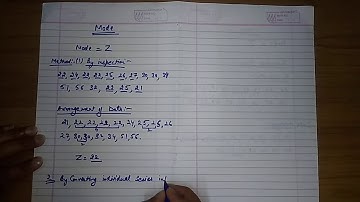 Mode
Mode = Z
Method:-(1) By inspection:-
22, 24, 22, 23, 25, 26, 27, 30, 30, 34
51, 56, 32, 22, 25, 21
Arrangement of Data:-
21, 22, 22, 22, 23, 24, 25, 25, 26
27, 30, 30, 32, 34, 51, 56.
Z = 22
By Converting individual Series in